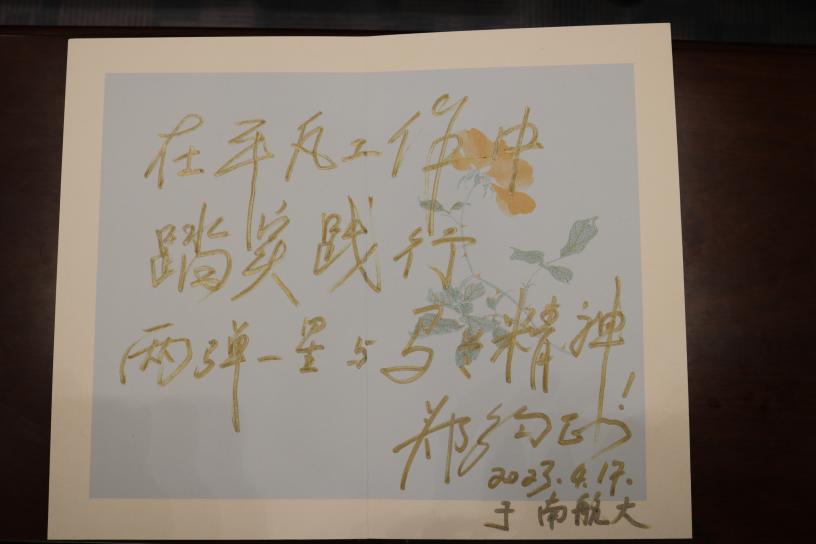 在平凡工作中
踏实践行
两弹一星与马兰精神!
郑绍
2023.4.17.
于南航大